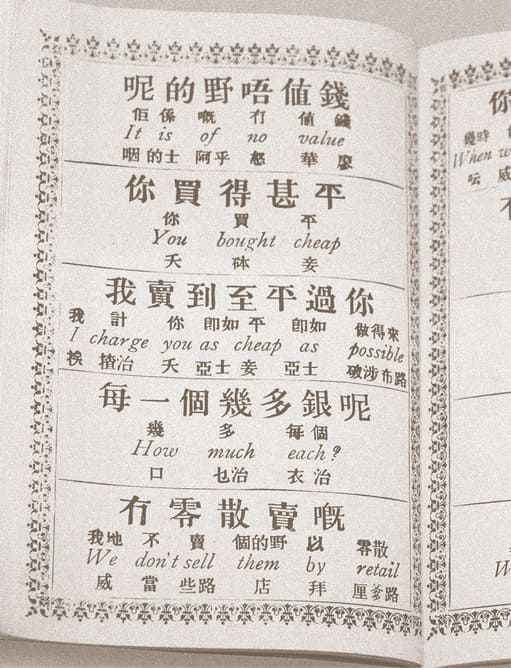 呢的野唔值錢
佢係 嘅 冇 值 錢
It is of no value
咽 的士 阿乎 怒 華 廖
你買得甚平
你 買 平
You bought cheap
夭 砵 妾
我賣到至平過你
我 計 你 即如 平 即如 做得來
I charge you as cheap as possible
挨 揸治 夭 亞士 妾 亞士 破涉布路
每一個幾多銀呢
幾 多 每個
How much each?
口 乜治 衣治
冇零散賣嘅
我地 不 賣 個的野 以 零散
We don't sell them by retail
威 當 些路 店 拜 厘爹路
你
幾時
When w
呍 威
W